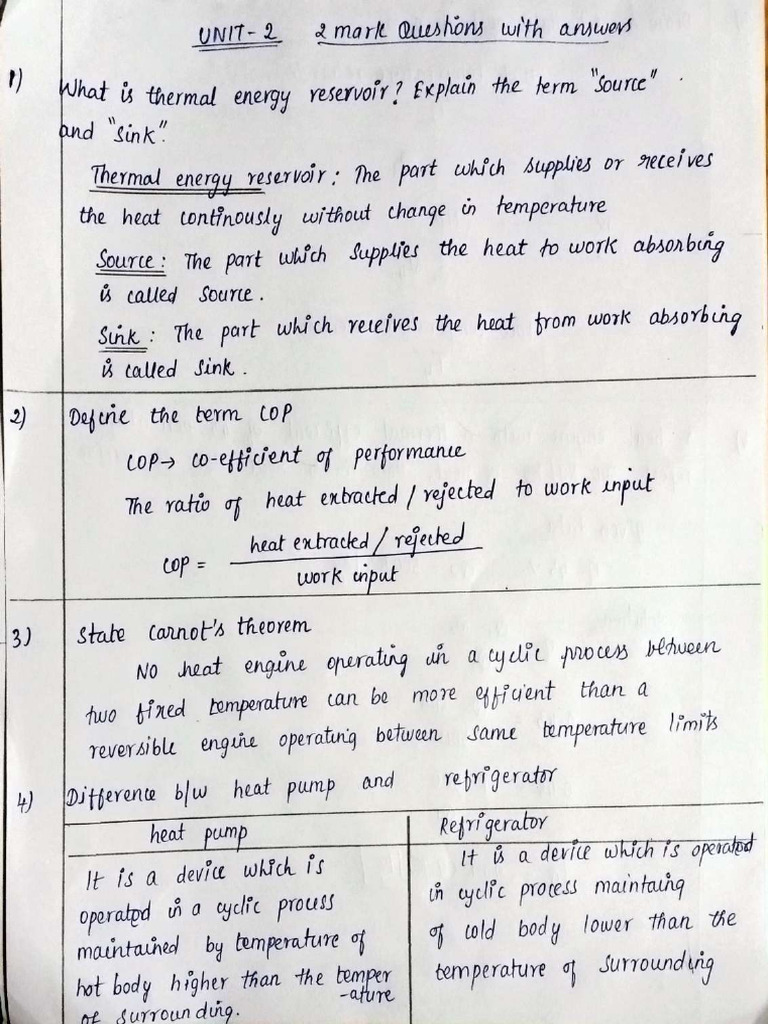 UNIT-2 2 mark Questions with answers
1) What is thermal energy reservoir? Explain the term "Source"
and "Sink".
Thermal energy reservoir: The part which supplies or receives
the heat continously without change in temperature
Source: The part which supplies the heat to work absorbing
is called source.
Sink: The part which receives the heat from work absorbing
is called sink.
2) Define the term COP
COP→ co-efficient of performance
The ratio of heat extracted / rejected to work input
COP = heat extracted / rejected
work input
3) State Carnot's theorem
No heat engine operating in a cyclic process between
two fixed temperature can be more efficient than a
reversible engine operating between same temperature limits
4) Difference b/w heat pump and refrigerator
heat pump
It is a device which is
operated in a cyclic process
maintained by temperature of
hot body higher than the temper
-ature
of surrounding.
Refrigerator
It is a device which is operated
in cyclic process maintaing
of cold body lower than the
temperature of surrounding